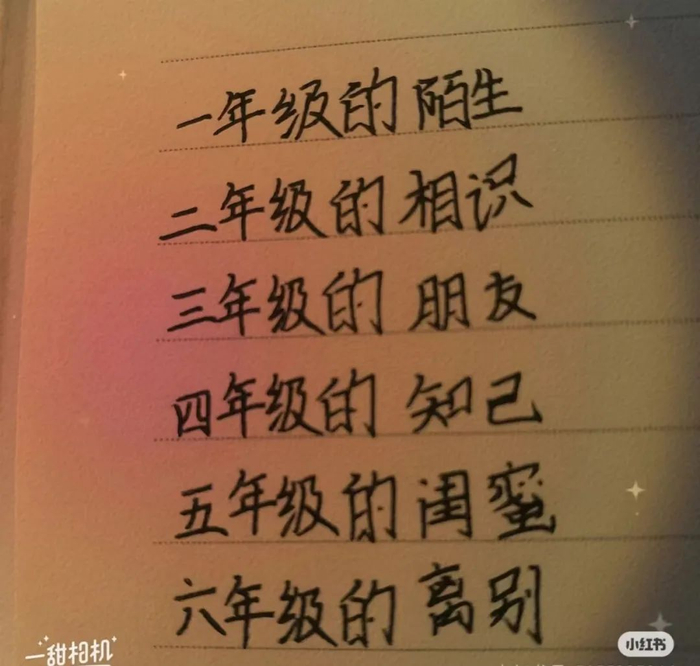 一年级的陌生
二年级的相识
三年级的朋友
四年级的知己
五年级的闺蜜
六年级的离别
一甜相机
小红书